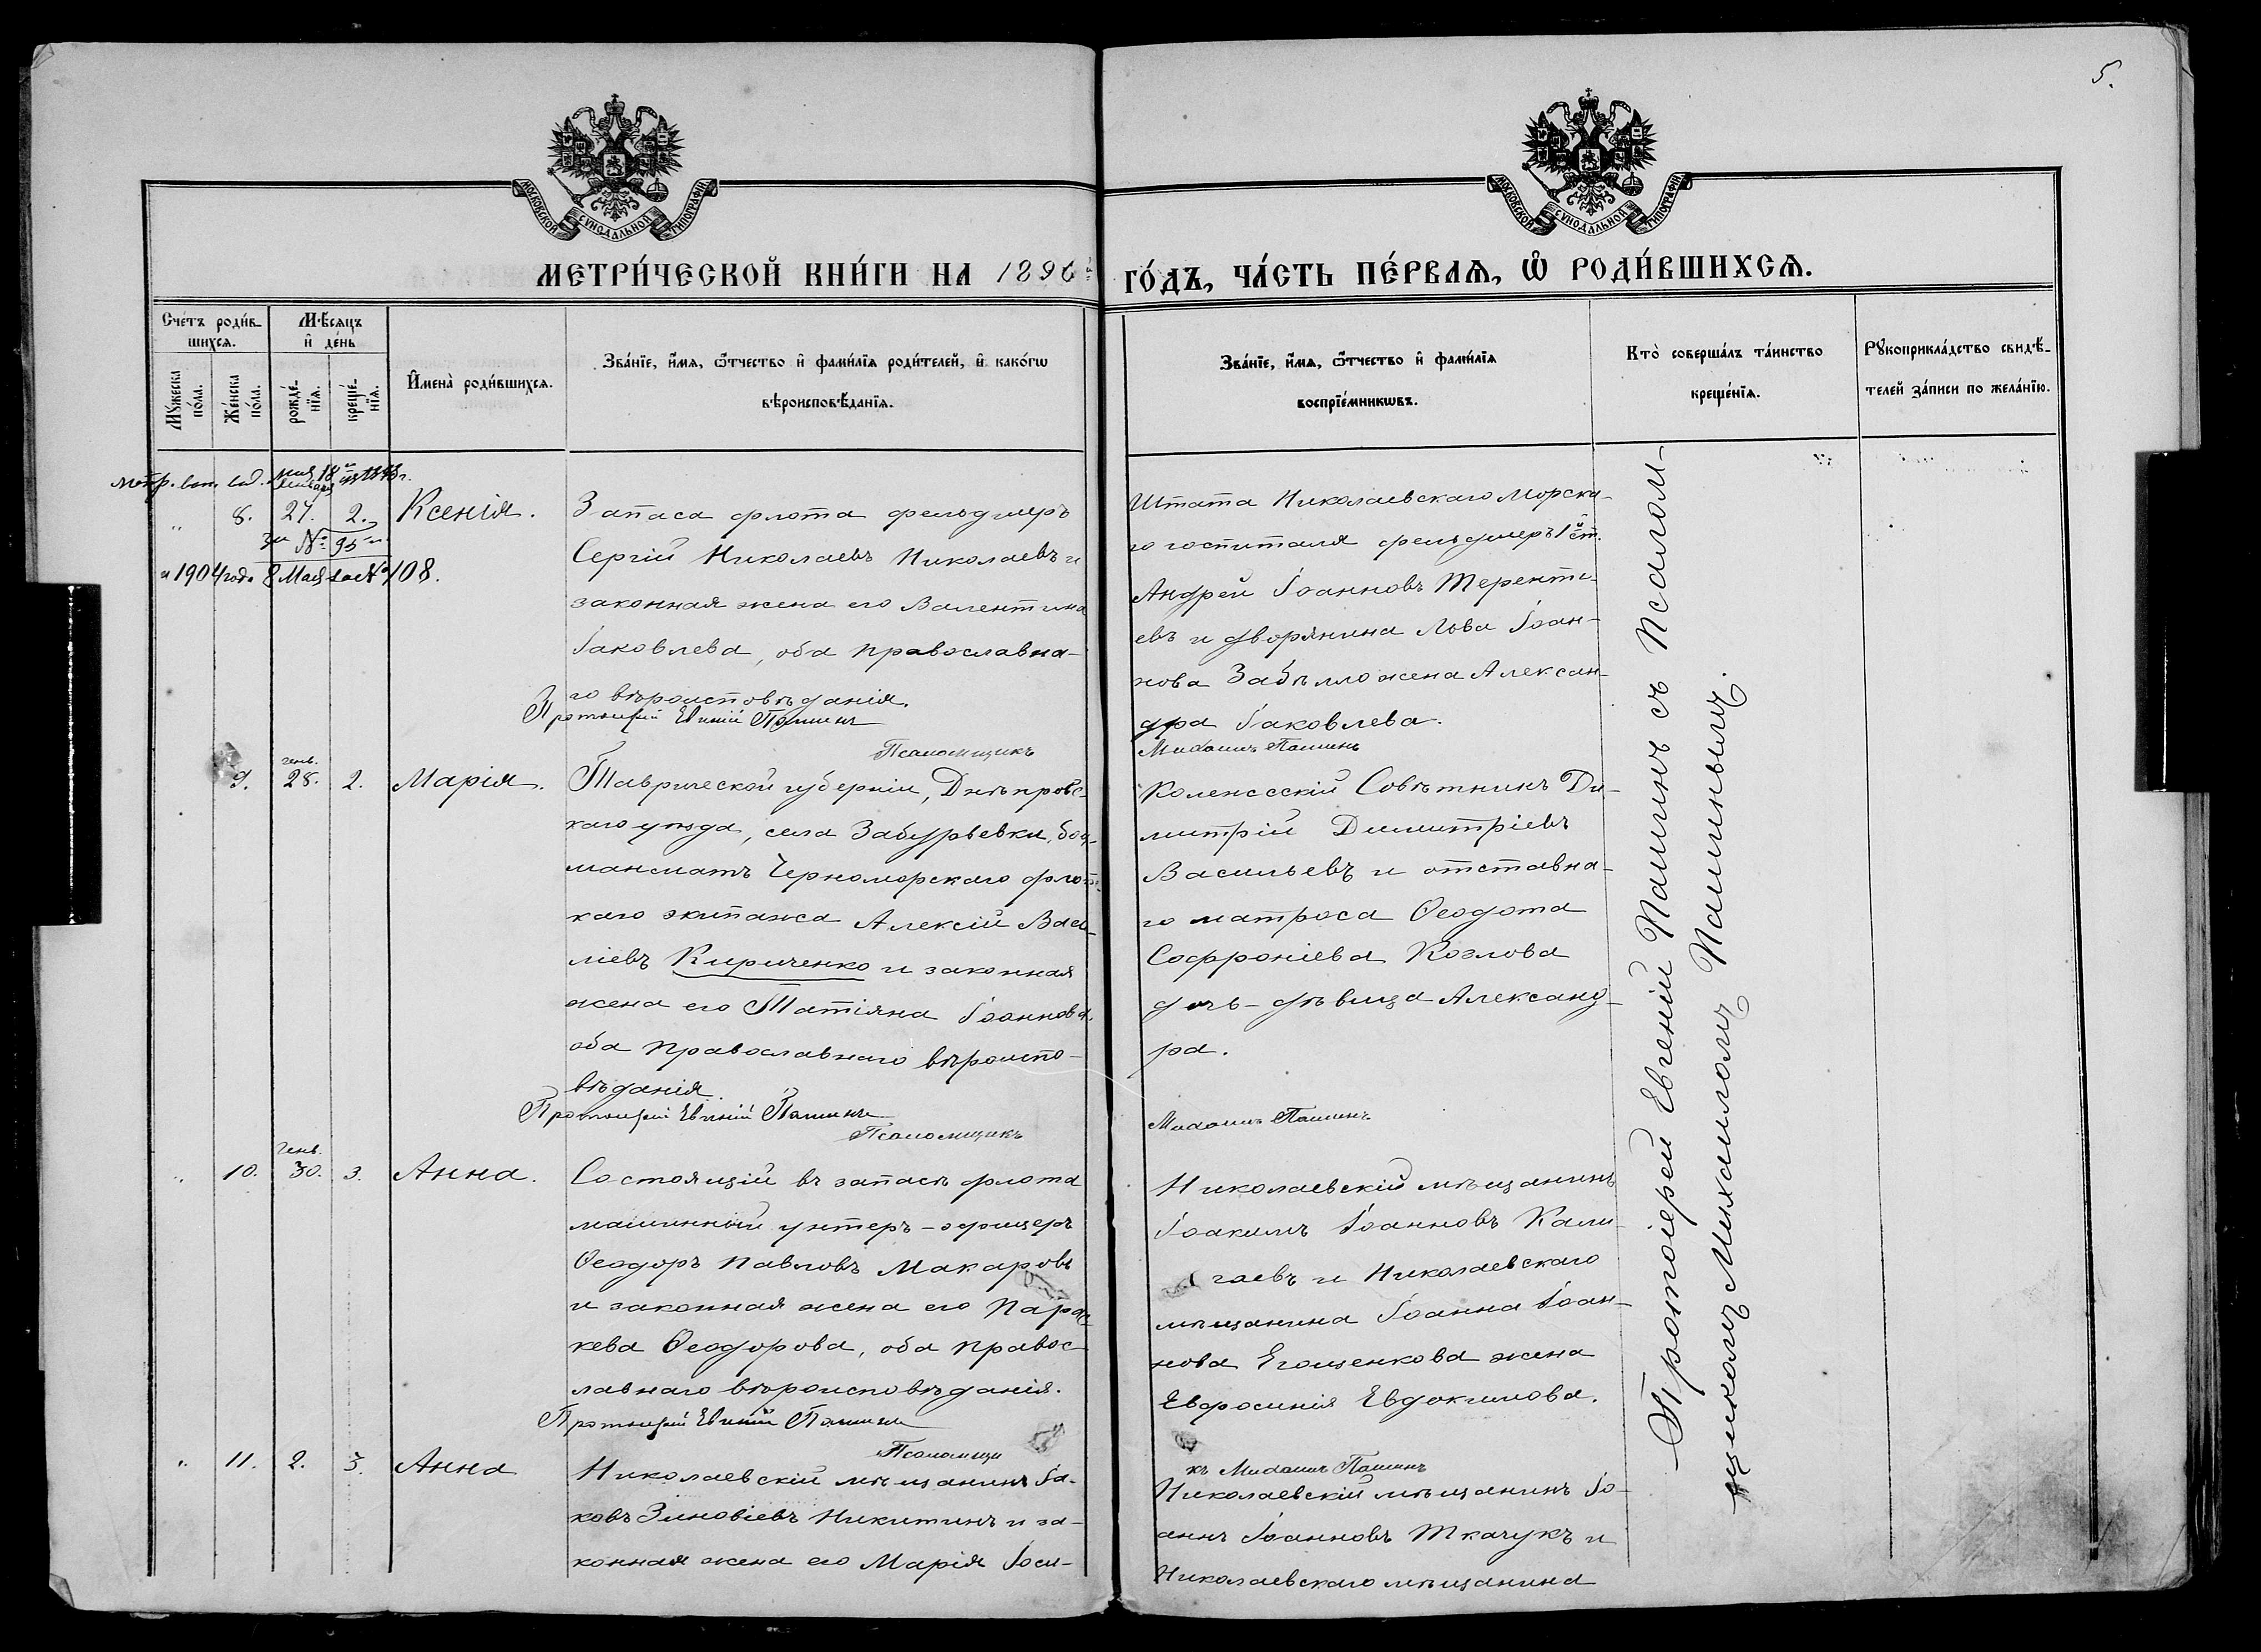 5.
МОСКОВСКОЙ СѴНОДАЛЬНОЙ ТИПОГРАФІИ
МОСКОВСКОЙ СѴНОДАЛЬНОЙ ТИПОГРАФІИ
МЕТРИ́ЧЕСКОЙ КНИ́ГИ НА 1896й ГО́ДЪ, ЧА́СТЬ ПЕ́РВАѦ, Ѡ РОДИ́ВШИХСѦ.
Сче́тъ роди́в-
шихсѧ.
Мꙋ́жеска по́ла.
Же́нска по́ла.
Мѣ́сѧцъ
и҆ де́нь
рожде́-
нїѧ.
креще́-
нїѧ.
И҆мена̀ роди́вшихсѧ.
Зва́нїе, и҆́мѧ, ѻ҆́тчество и҆ фами́лїѧ роди́телей, и҆ како́гѡ
вѣроисповѣ́данїѧ.
Зва́нїе, и҆́мѧ, ѻ҆́тчество и҆ фами́лїѧ
воспрїе́мникѡвъ.
Кто̀ соверша́лъ та́инство
креще́нїѧ.
Рꙋкоприкла́дство свидѣ́-
телей за́писи по жела́нїю.
8. 27. 2. Ксенія.
за № 95
и 1904 года 8 Мая за № 108.
Запаса флота фельдшеръ
Сергій Николаевъ Николаевъ и
законная жена его Валентина
Іаковлева, оба православна-
го вѣроисповѣданія.
Протоіерей Евгеній Пашинъ
Псаломщикъ
Штата Николаевскаго Морска-
го госпиталя фельдшеръ 1й ст.
Андрей Іоанновъ Теренть-
евъ и дворянина Льва Іоан-
нова Забѣлло жена Алексан-
дра Іаковлева.
Михаилъ Пашинъ
9. генв. 28. 2. Марія.
Таврической губерніи, Днѣпровс-
каго уѣзда, села Забурьевки, боц-
манматъ Черноморскаго флотс-
каго экипажа Алексій Васи-
ліевъ Кириченко и законная
жена его Татіяна Іоаннова,
оба Православнаго вѣроиспо-
вѣданія.
Протоіерей Евгеній Пашинъ
Псаломщикъ
Коллежскій Совѣтникъ Ди-
митрій Димитріевъ
Васильевъ и отставна-
го матроса Ѳеодота
Софроніева Козлова
дочь-дѣвица Александ-
ра.
Михаилъ Пашинъ
10. Генв. 30. 3. Анна.
Состоящій въ запасѣ флота
машинный унтеръ-офицеръ
Ѳеодоръ Павловъ Макаровъ
и законная жена его Парас-
кева Ѳеодорова, оба правос-
лавнаго вѣроисповѣданія.
Протоіерей Евгеній Пашинъ
Псаломщи
Николаевскій мѣщанинъ
Іоакимъ Іоанновъ Кали-
гаевъ и Николаевскаго
мѣщанина Іоанна Іоан-
нова Егощенкова жена
Евфросинія Евдокимова.
къ Михаилъ Пашинъ
11. 2. 3. Анна
Николаевскій мѣщанинъ Іа-
ковъ Зиновіевъ Никитинъ и за-
конная жена его Марія Іоси-
Николаевскій мѣщанинъ Іо-
аннъ Іоанновъ Ткачукъ и
Николаевскаго мѣщанина
Протоіерей Евгеній Пашинъ съ Псалом-
щикомъ Михаиломъ Пашинымъ.